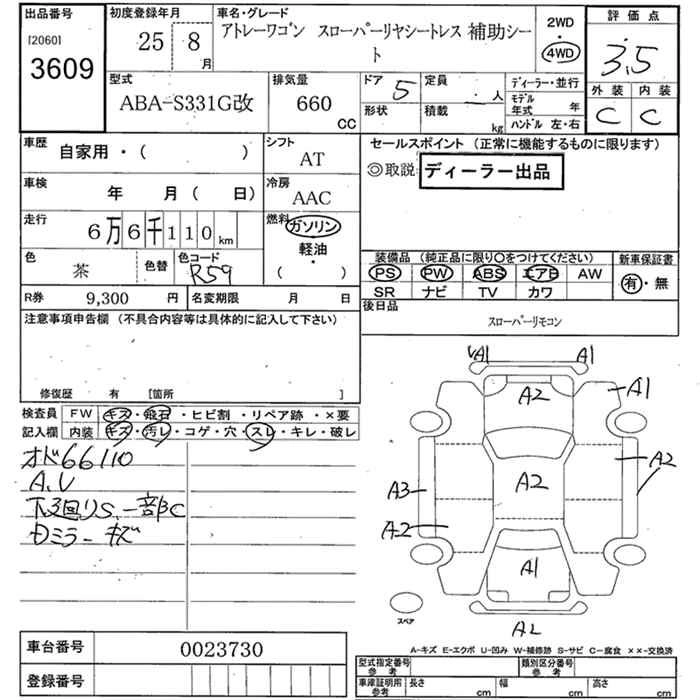 出品番号
[2060]
3609
初度登録年月
25 8
月
車名・グレード
アトレーワゴン スローパーリヤシートレス 補助シー
ト
2WD
4WD
評価点
3.5
外装 内装
C C
型式
ABA-S331G改
排気量
660
CC
ドア 5
形状
定員 人
積載 kg
ディーラー・並行
モデル
年式 年
ハンドル 左・右
車歴
自家用・( )
シフト
AT
セールスポイント (正常に機能するものに限ります)
◎取説 ディーラー出品
車検
年 月 ( 日)
冷房
AAC
走行
6万6千110 km
燃料
ガソリン
軽油・
( )
色
茶
色替
色コード
R59
装備品 (純正品に限り○をつけてください)
PS PW ABS エアB AW
SR ナビ TV カワ
新車保証書
有・無
R券 9,300 円
名変期限 月 日
後日品
スローパーリモコン
注意事項申告欄 (不具合内容等は具体的に記入して下さい)
修復歴 有 [箇所 ]
検査員
記入欄
FW キズ・飛石・ヒビ割・リペア跡・×要
内装 キズ・汚レ・コゲ・穴・スレ・キレ・破レ
オド66110
A.V
下廻りS.一部C
Dミラーキズ
A1 A1
A2 A1
A2
A2
A3
A2
A1
A2
スペア
A-キズ E-エクボ U-凹み W-補修跡 S-サビ C-腐食 ××-交換済
車台番号 0023730
登録番号
型式指定番号
参考
類別区分番号
参考
車庫証明用
参考
長さ cm
幅 cm
高さ cm